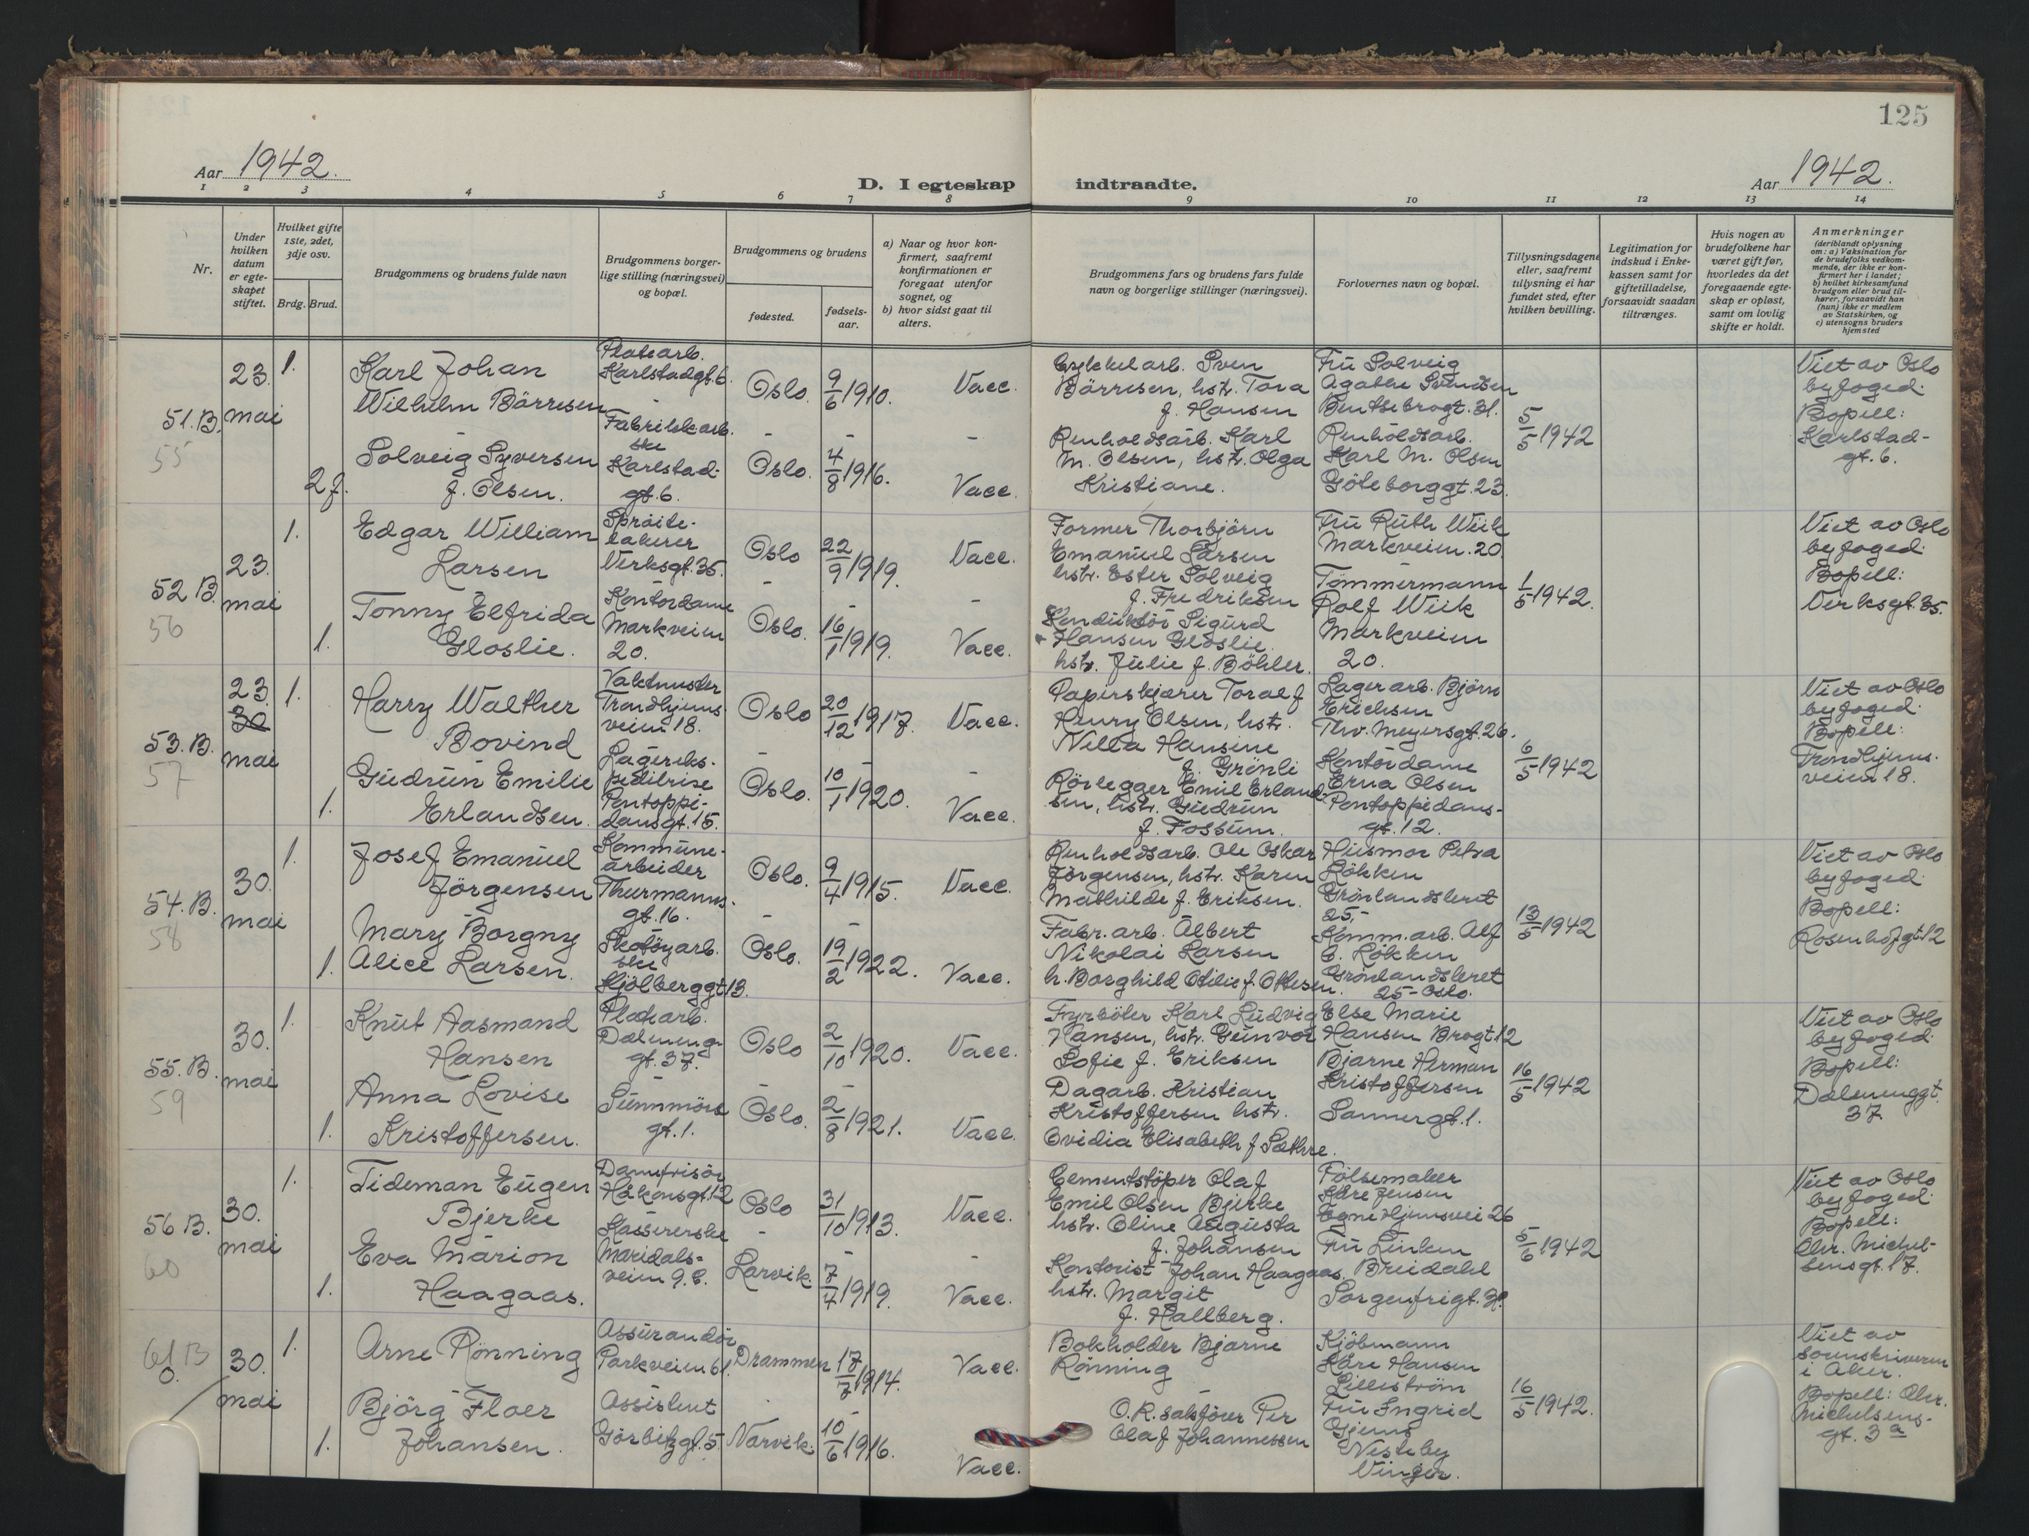 125
Aar 1942.
D. I egteskap indtraadte.
Aar 1942.
1 2 3 4 5 6 7 8 9 10 11 12 13 14
Nr.
Under hvilken datum er egte-skapet stiftet.
Hvilket gifte 1ste, 2det, 3dje osv.
Brdg. Brud.
Brudgommens og brudens fulde navn
Brudgommens borger-lige stilling (næringsvei) og bopæl.
Brudgommens og brudens
fødested.
fødsels-aar.
a) Naar og hvor kon-firmert, saafremt konfirmationen er foregaat utenfor sognet, og
b) hvor sidst gaat til alters.
Brudgommens fars og brudens fars fulde navn og borgerlige stillinger (næringsvei).
Forlovernes navn og bopæl.
Tillysningsdagene eller, saafremt tillysning ei har fundet sted, efter hvilken bevilling.
Legitimation for indskud i Enke-kassen samt for giftetilladelse, forsaavidt saadan tiltrænges.
Hvis nogen av brudefolkene har været gift før, hvorledes da det foregaaende egte-skap er opløst, samt om lovlig skifte er holdt.
Anmerkninger
(deriblandt oplysning om: a) Vaksination for de brudefolks vedkom-mende, der ikke er kon-firmert her i landet; b) hvilket kirkesamfund brudgom eller brud til-hører, forsaavidt han (hun) ikke er medlem av Statskirken, og c) utensogns bruders hjemsted
51.B.
55
23. mai
1.
Karl Johan
Wilhelm Börresen
Platearb.
Karlstadgt. 6.
Oslo.
9/6 1910.
Vacc.
2 f.
Solveig Syversen
f. Olsen.
Fabrikkarb.
ske
Karlstad-
gt. 6.
Oslo.
4/8 1916.
Vacc.
Sykkelarb. Sven
Börresen, hstr. Tora
f. Hansen
Renholdsarb. Karl
M. Olsen, hstr. Olga
Kristiane.
Fru Solveig
Agathe Svendsen
Bentsebrogt. 31.
Renholdsarb.
Karl M. Olsen
Göteborggt. 23.
5/5 1942
Viet av Oslo
byfoged.
Bopell:
Karlstad-
gt. 6.
52 B.
56
23. mai
1.
Edgar William
Larsen
Sprøite-
lakerer
Verksgt. 35.
Oslo
22/9 1919.
Vacc.
1.
Tonny Elfrida
Gloslie.
Kontordame
Markveien
20.
Oslo.
16/1 1919.
Vacc.
Former Thorbjörn
Emanuel Larsen
hstr. Ester Solveig
f. Fredriksen
Konduktör Sigurd
Hansen Gloslie
hstr. Julie f. Böhler.
Fru Ruth Wiik
Markveien 20.
Tømmermann
Rolf Wiik
Markveien
20.
1/5 1942.
Viet av Oslo
byfoged.
Bopell:
Verksgt. 35.
53.B.
57
23.
30
mai
1.
Harry Walther
Bovind
Vaktmester
Trondhjems-
veien 18.
Oslo
20/12 1917.
Vacc.
1.
Gudrun Emilie
Erlandsen.
Lagereks-
peditrise
Pontoppi-
dansgt. 15.
Oslo.
10/1 1920.
Vacc.
Papirskjærer Toralf
Henry Olsen, hstr.
Nilla Hansine
f. Grönli
Rörlegger Emil Erland-
sen, hstr. Gudrun
f. Fossum.
Lagerarb. Björn
Ericksen
Thv. Meyersgt. 26.
Kontordame
Erna Olsen
Pontoppidans-
gt. 12.
6/5 1942
Viet av Oslo
byfoged.
Bopell:
Trondhjems-
veien 18.
54.B.
58
30. mai
1.
Josef Emanuel
Jörgensen
Kommune-
arbeider
Thurmanns-
gt. 16.
Oslo.
9/4 1915.
Vacc.
1.
Mary Borgny
Alice Larsen.
Skotøyarb.
ske
Kjölberggt 13.
Oslo.
19/2 1922.
Vacc.
Renholdsarb. Ole Oskar
Jørgensen, hstr. Karen
Mathilde f. Eriksen.
Fabr. arb. Albert
Nikolai Larsen
h. Borghild Otilie f. Ottesen.
Husmor Petra
Løkken
Grönlandsleret
25.-
Komm. arb. Alf
Løkken
Grönlandsleret
25 - Oslo.
13/5 1942
Viet av Oslo
byfoged.
Bopell:
Rosenhofgt. 12
55.B.
59
30. mai
1.
Knut Aasmand
Hansen
Platearb.
Dæleneng-
gt. 37.
Oslo
2/10 1920.
Vacc.
1.
Anna Lovise
Kristoffersen.
Sunnmörs
gt. 1.
Oslo.
2/8 1921.
Vacc.
Fyrböter Karl Ludvig
Hansen, hstr. Gunvor
Sofie f. Eriksen
Dagarb. Kristian
Kristoffersen hstr.
Ovidia Elisabeth f Sæthre.
Else Marie
Hansen Brogt 12
Bjarne Herman
Kristoffersen
Sannergt. 1.
16/5 1942
Viet av Oslo
byfoged.
Bopell:
Dælenenggt.
37
56 B.
60
30. mai
1.
Tideman Eugen
Bjerke
Damefrisör
Håkonsgt. 12
Oslo
31/10 1913.
Vacc.
1.
Eva Marion
Haagaas.
Kassererske
Maridals-
veien 9.
Larvik
7/4 1919.
Vacc.
Cementstöper Olaf
Emil Olsen Bjerke
hstr. Oline Augusta
f. Johansen
Kontorist Johan Haagaas.
hstr. Margit
f. Hallberg.
Pølsemaker
Kåre Jensen
Egnehjemsvei 26
Fru Linken
Breidahl
Sorgenfrigt.
5/6 1942
Viet av Oslo
byfoged.
Bopell:
Chr. Michel-
sensgt. 17.
61 B
30. mai
1.
Arne Rönning
Assurandör
Parkveien 61.
Drammen
17/7 1914.
Vacc.
1.
Björg Floer
Johansen.
Assistent
Görbitzgt. 5
Narvik.
10/6 1916.
Vacc.
Bokholder Bjarne
Rönning
O.R. sakförer Per
Olaf Johannessen
Kjöbmann
Kåre Hansen
Lilleström
Fru Ingrid
Gjems
Nesteby
Vinger.
16/5 1942.
Viet av
sorenskriveren
i Aker.
Bopell: Chr.
Michelsens-
gt. 3a